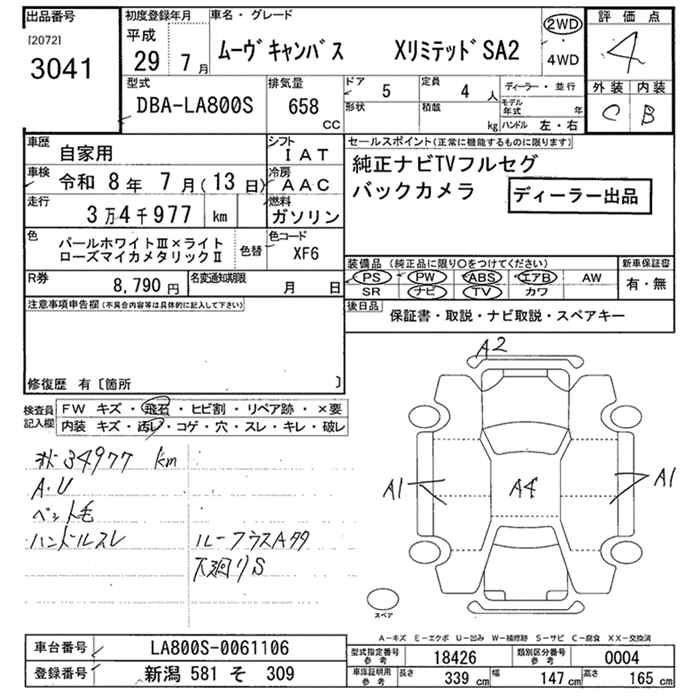 出品番号
[2072]
3041
初度登録年月
平成
29 7月
車名・グレード
ムーヴキャンバス XリミテッドSA2
2WD
4WD
評価点
4
外装 内装
C B
型式
DBA-LA800S
排気量
658
CC
ドア 5
形状
定員 4人
積載 kg
ディーラー・並行
モデル年式 年
ハンドル 左・右
車歴 自家用
シフト IAT
車検 令和 8年 7月(13日)
冷房 AAC
走行 3万4千977 km
燃料 ガソリン
色 パールホワイトⅢ×ライト
ローズマイカメタリックⅡ
色替
色コード XF6
R券 8,790円
名変通知期限 月 日
セールスポイント(正常に機能するものに限ります)
純正ナビTVフルセグ
バックカメラ
ディーラー出品
装備品 (純正品に限り〇をつけてください)
PS PW ABS エアB AW
SR ナビ TV カワ
新車保証書
有・無
後日品
保証書・取説・ナビ取説・スペアキー
注意事項申告欄(不具合内容等は具体的に記入して下さい)
修復歴 有〔箇所 〕
検査員記入欄
FW キズ・飛石・ヒビ割・リペア跡・×要
内装 キズ・汚レ・コゲ・穴・スレ・キレ・破レ
34977 km
A・U
ペット毛
ハンドルスレ
ルーフラスAタタ
下廻りS
A2
A1
A4
A1
スペア
A-キズ E-エクボ U-凹み W-補修跡 S-サビ C-腐食 XX-交換済
車台番号 LA800S-0061106
登録番号 新潟 581 そ 309
型式指定番号 参考 18426
類別区分番号 参考 0004
車庫証明用 参考 長さ 339 cm 幅 147 cm 高さ 165 cm